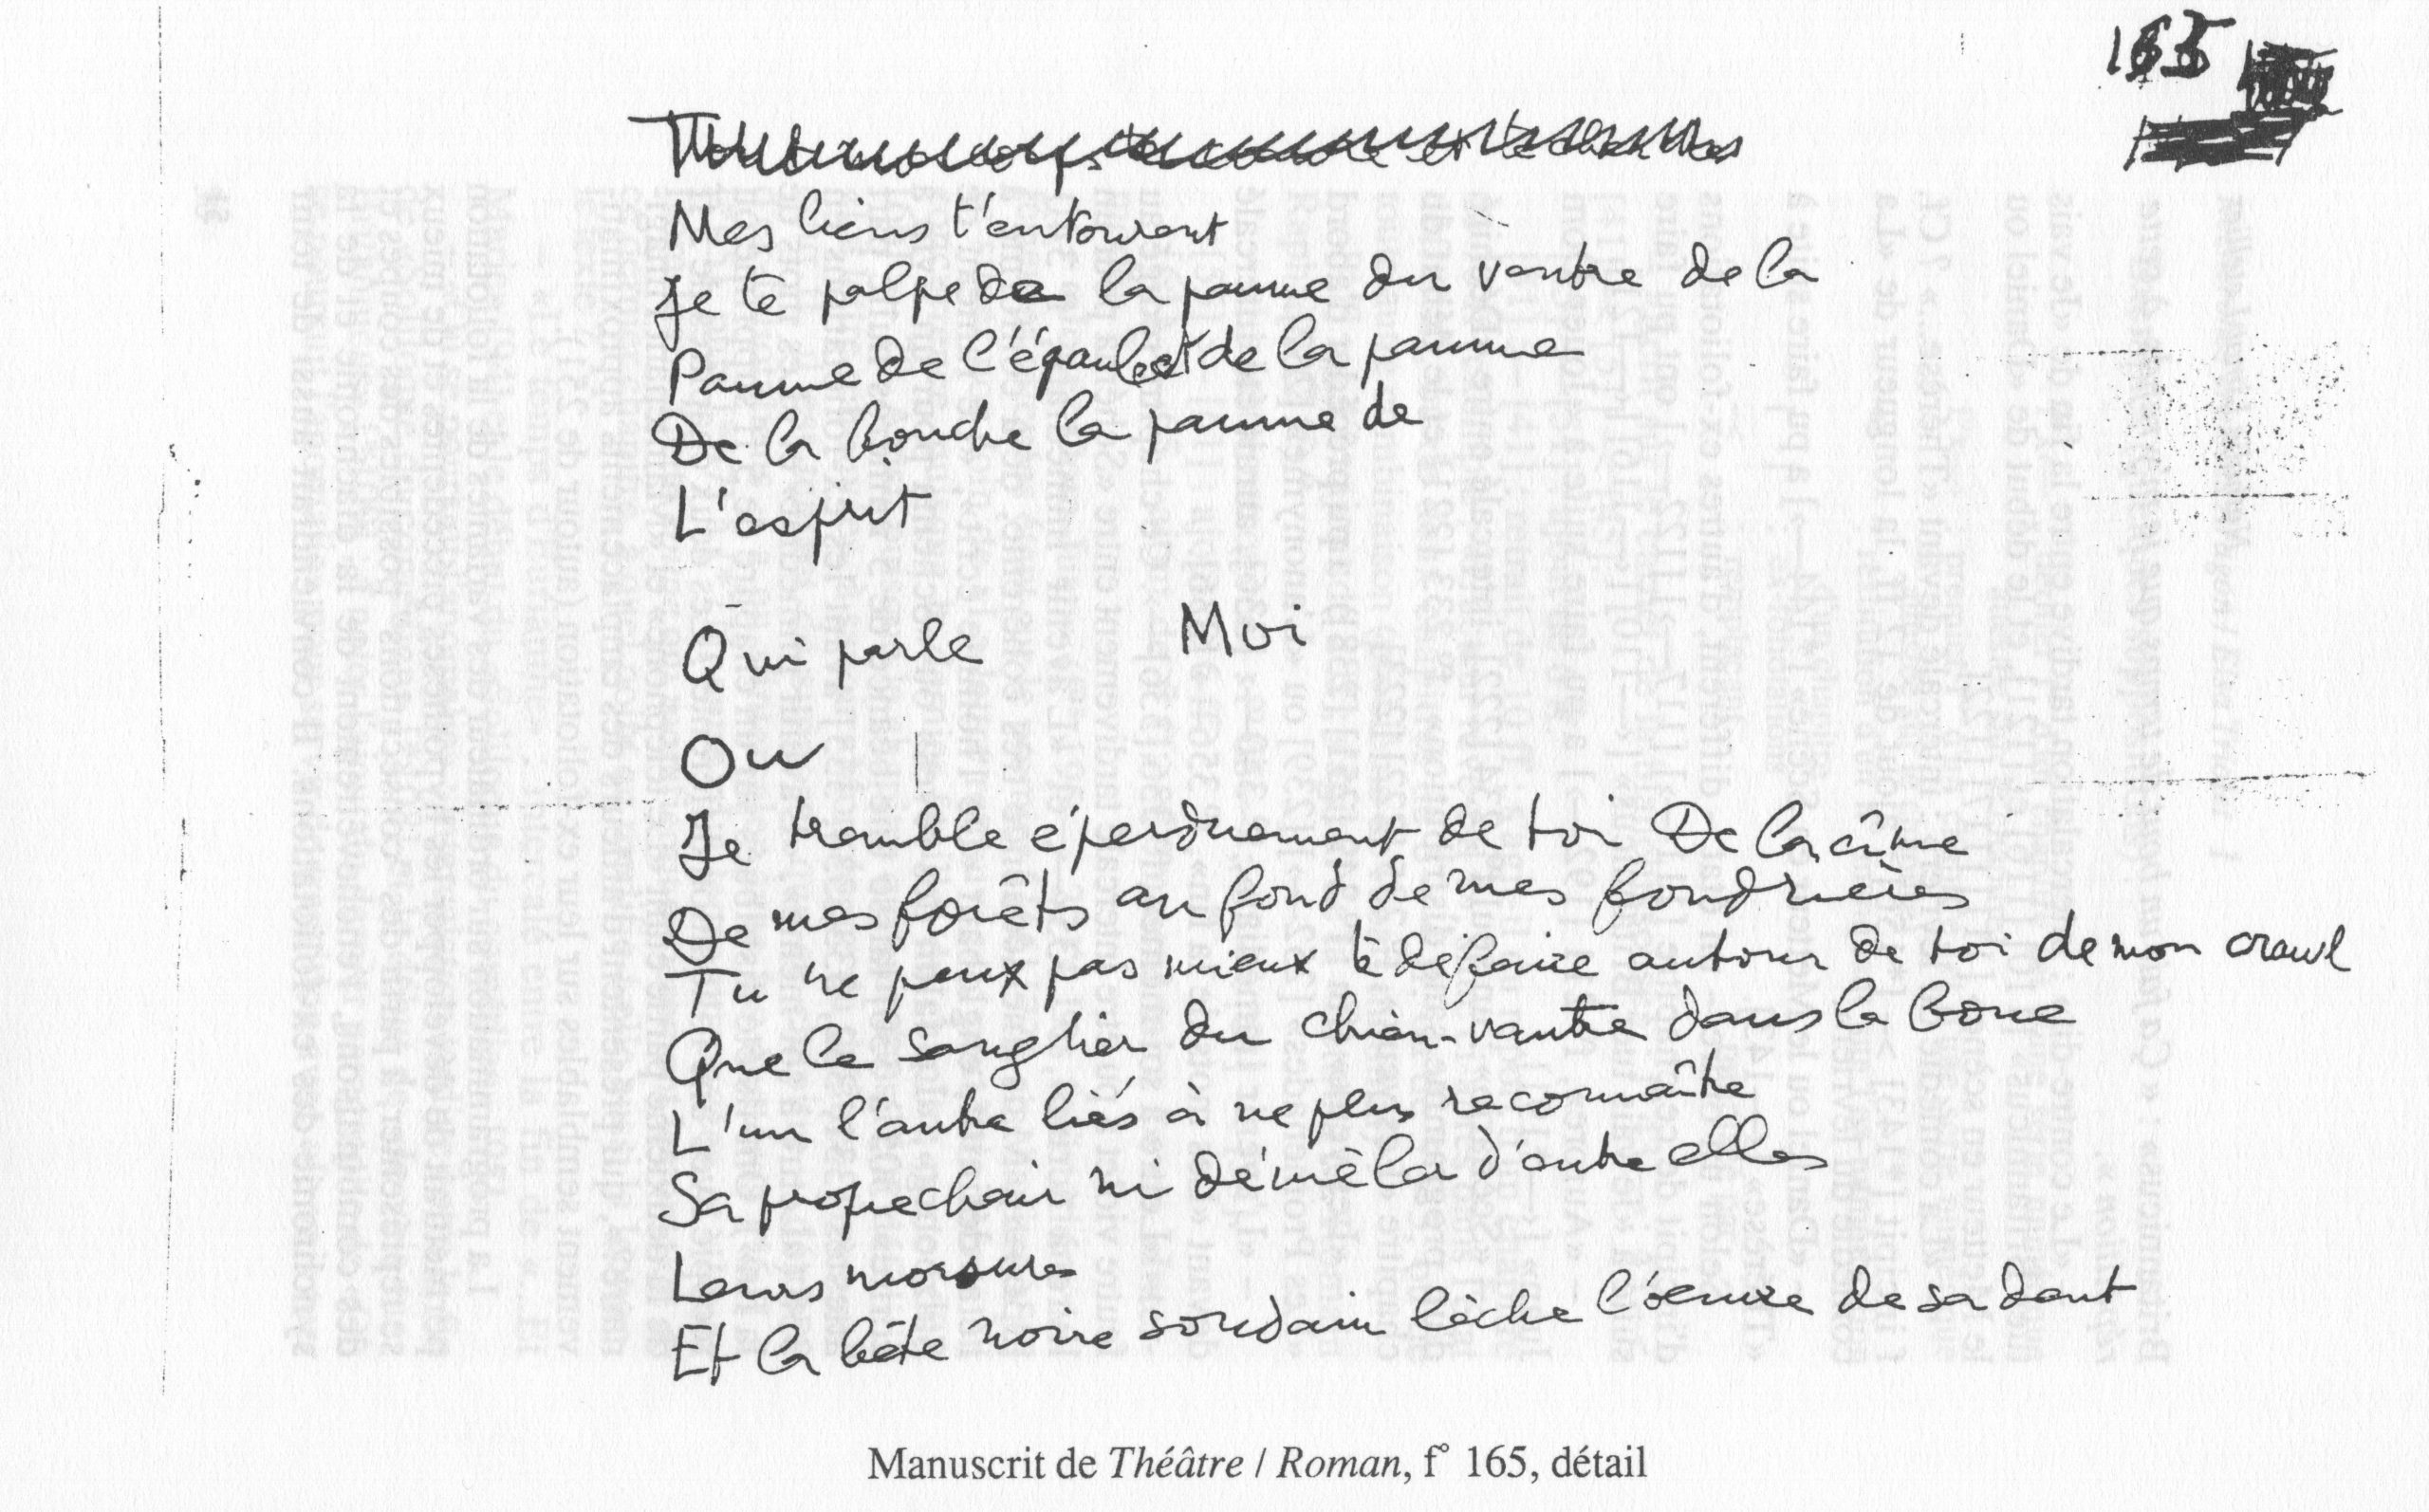 165
Mes liens t'entourent
Je te palpe de la paume du ventre de la
Paume de l'épaule et de la paume
De la bouche la paume de
L'esprit
Qui parle Moi
Ou
Je tremble éperduement de toi De la cîme
De mes forêts au fond de mes fondrières
Tu ne peux pas mieux te défaire autour de toi de mon crawl
Que le sanglier du chien-vautre dans la boue
L'un l'autre liés à ne plus reconnaître
Sa propre chair ni démêler d'entre elles
Leurs morsures
Et la bête noire soudain lèche l'œuvre de sa dent
Manuscrit de Théâtre / Roman, f° 165, détail